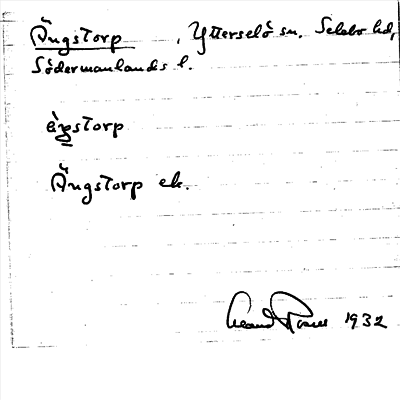 Ängstorp, Ytterselö sn. Selebo hd,
Södermanlands l.
ängstorp
Ängstorp ek.
1932